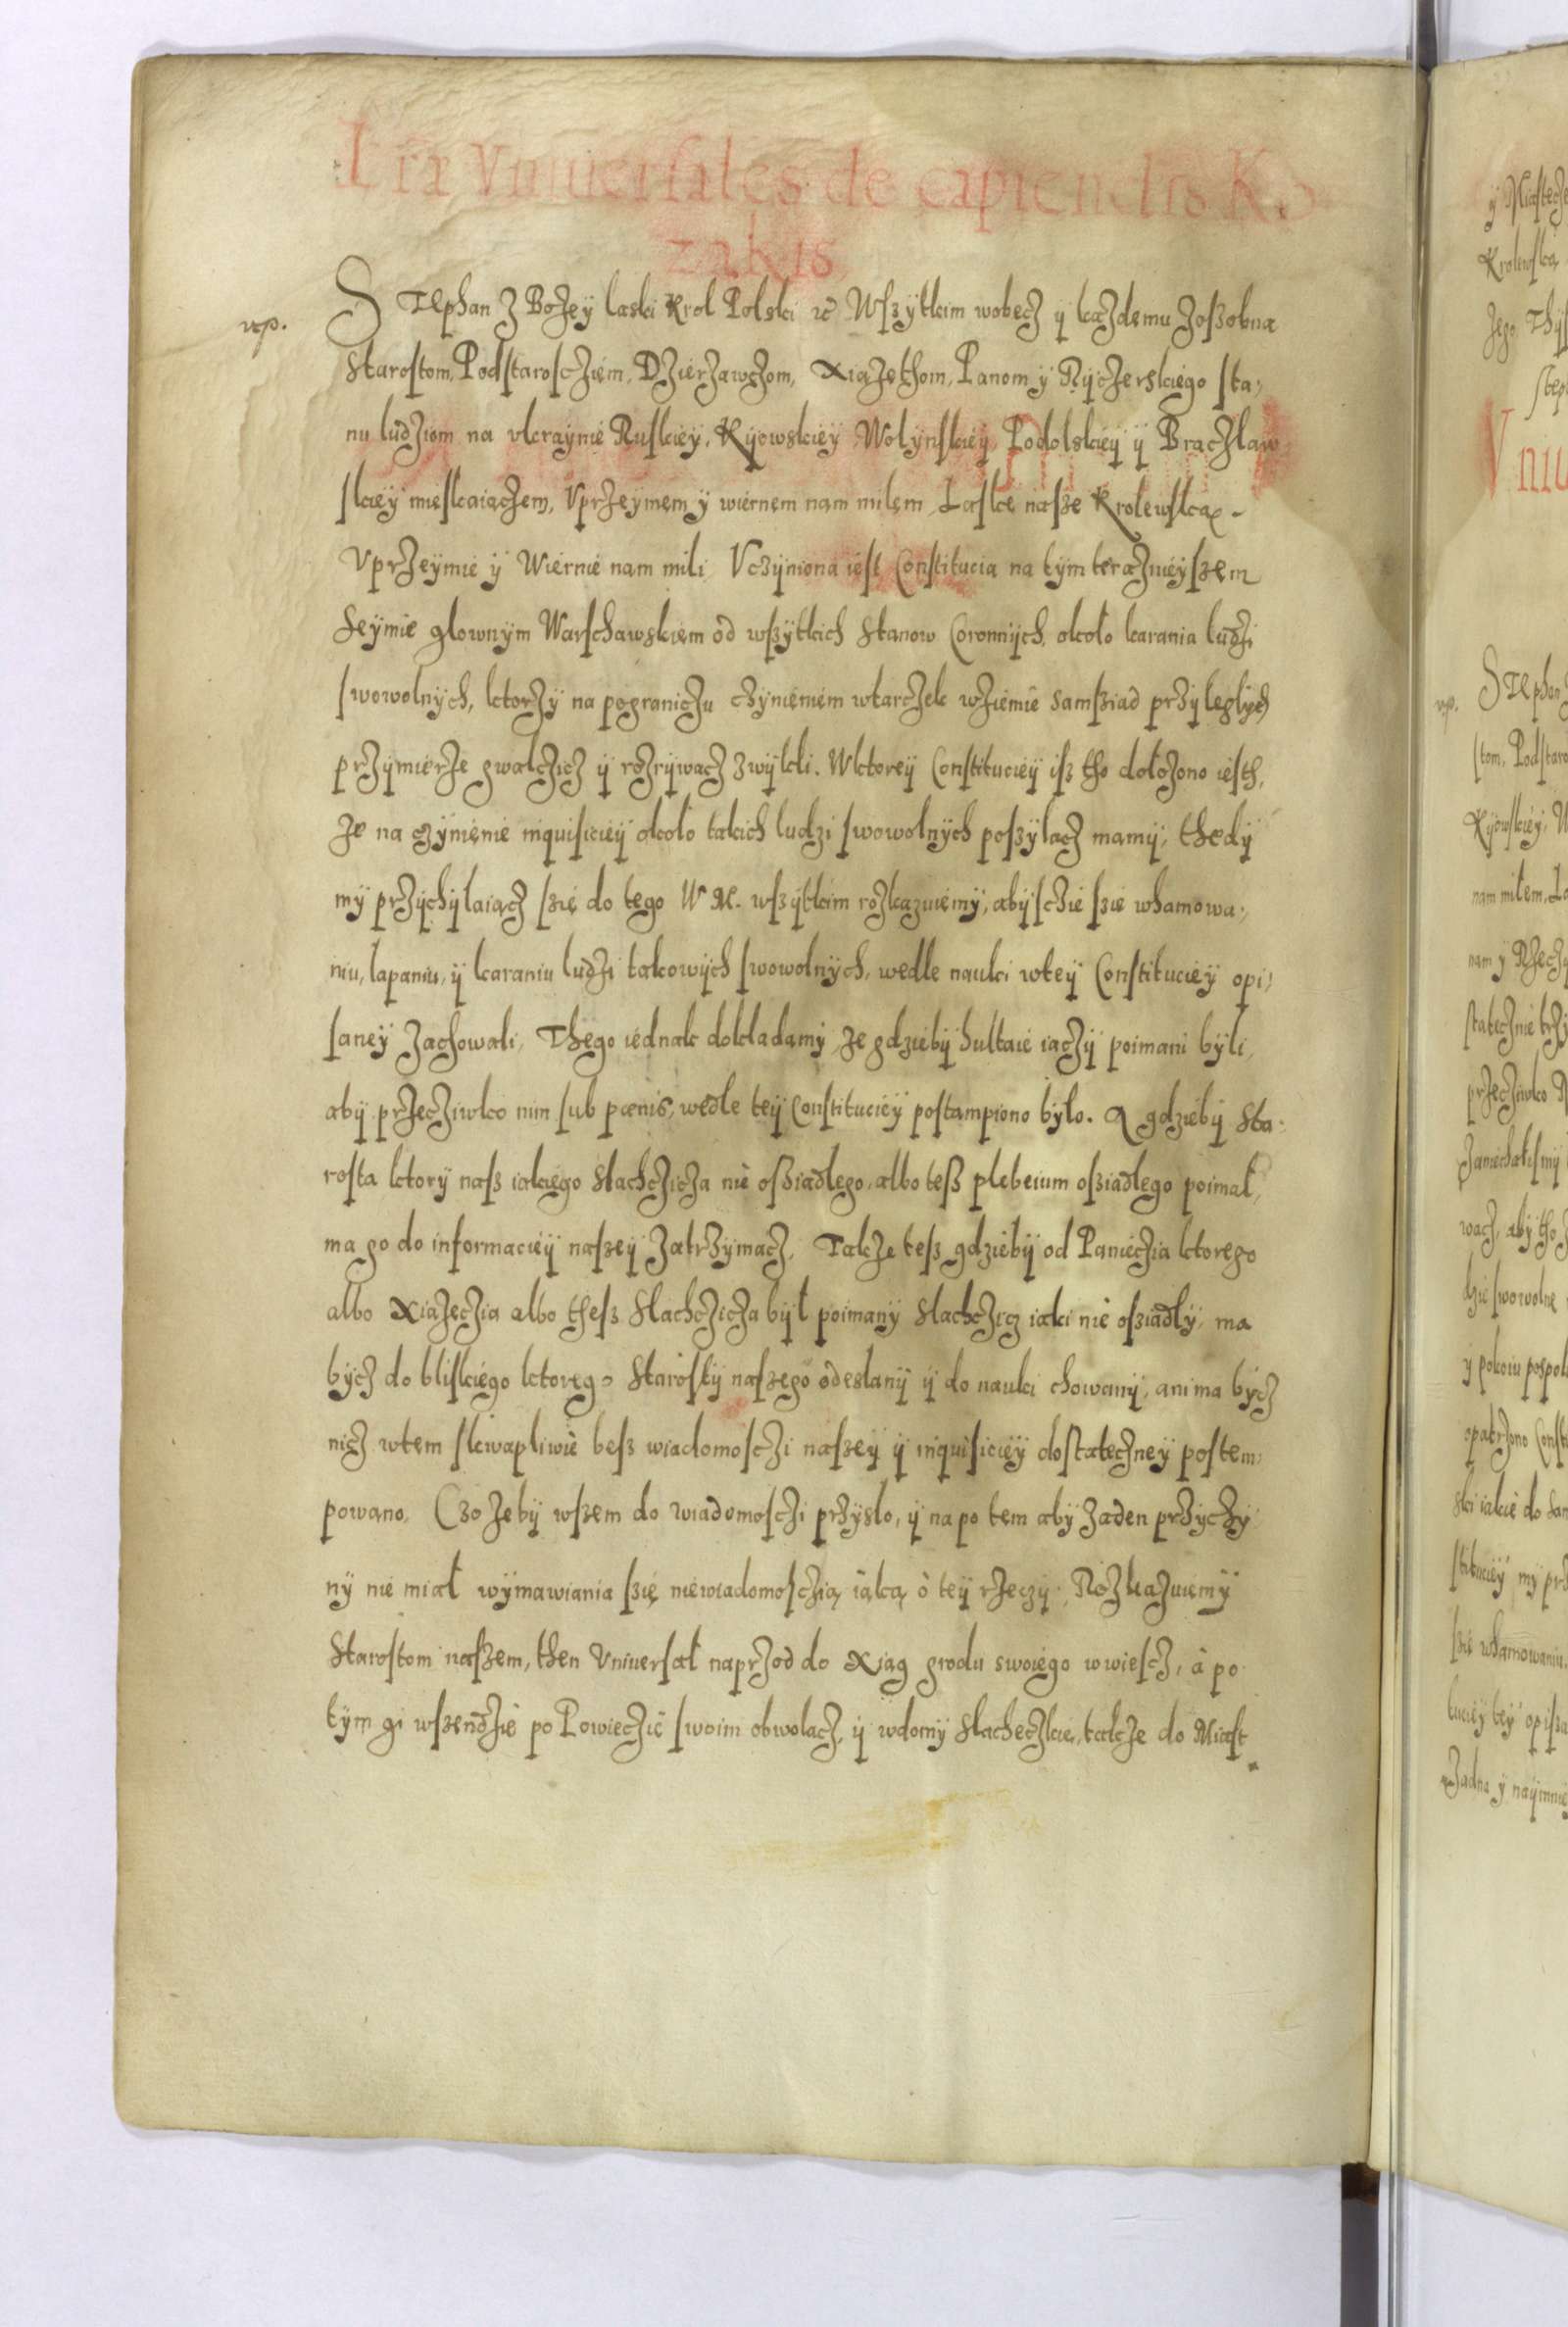 Lrae Vniuersales de capiendis Ko
zakis
vp.
STephan Z Bożey laski Krol Polski etc Wszytkim wobecz ÿ każdemu zoszobna
Starostom, Podstarosczięm, Dzierżawczom, Xiążęthom, Panom ÿ Rÿczerskiego sta,
nu ludziom na vkraÿnie Ruskieÿ, Kÿowskieÿ Wolÿnskieÿ, Podolskieÿ ÿ Braczlaw
skieÿ mieskaiączem, Vprzeÿmem ÿ wiernem nam milem, Laskę nasze Krolewską.
Vprzeÿmie ÿ Wiernie nam mili Vczÿniona iest Constitucia na tÿm teraznieÿszem
Seÿmie glownÿm Warschawskiem od wszÿtkich Stanow Coronnÿch, około karania ludzi
swowolnÿch, ktorzÿ na pograniczu czÿnieniem wtarczek wziemie samsziad przÿleglÿch
przÿmierze gwalczicz ÿ rozrÿwacz zwÿkli. Wktoreÿ Constitucieÿ isz tho dołożono iesth,
że na czÿnienie inquisicieÿ około takich ludzi swowolnÿch poszÿlacz mamÿ, thedÿ
mÿ przÿchÿlaiącz szię do tego W M. wszÿtkim rozkazuiemÿ, abÿsczie szie whamowa,
niu, lapaniu, ÿ karaniu ludzi takowÿch swowolnÿch, wedle nauki wteÿ Constitucieÿ opi,
saneÿ zachowali, Thego iednak dokladamÿ że gdziebÿ hultaie iaczÿ poimani bÿli,
abÿ przecziwko nim sub pœnis, wedle teÿ Constitucieÿ postampiono bÿlo. A gdziebÿ Sta,
rosta ktorÿ nasz iakiego Slachczicza nie osziadlego, albo tesz plebeium osziadlego poimał,
ma go do informacieÿ naszeÿ zatrzÿmacz, Także tesz gdziebÿ od Panieczia ktorego
albo Xiążeczia albo thesz Slachczicza bÿł poimanÿ Slachczicz iaki nie osziadłÿ, ma
bÿcz do bliskiego ktorego Starostÿ naszego odeslanÿ ÿ do nauki chowanÿ, ani ma bÿcz
nicz wtem skwapliwie besz wiadomosczi naszeÿ ÿ inquisicieÿ dostateczneÿ postem,
powano. Czo żebÿ wszem do wiadomosczi przÿslo, ÿ na po tem abÿ żaden przÿczÿ
nÿ nie miał wÿmawiania szię niewiadomosczią iaką o teÿ rzeczÿ. Rozkazuiemÿ
Starostom naszem, then Vniuersał naprzod do Xiąg grodu swoiego wwiescz, a po
tÿm gi wszendzie po Powieczie swoim obwolacz, ÿ wdomÿ Slacheczkie, także do Miast